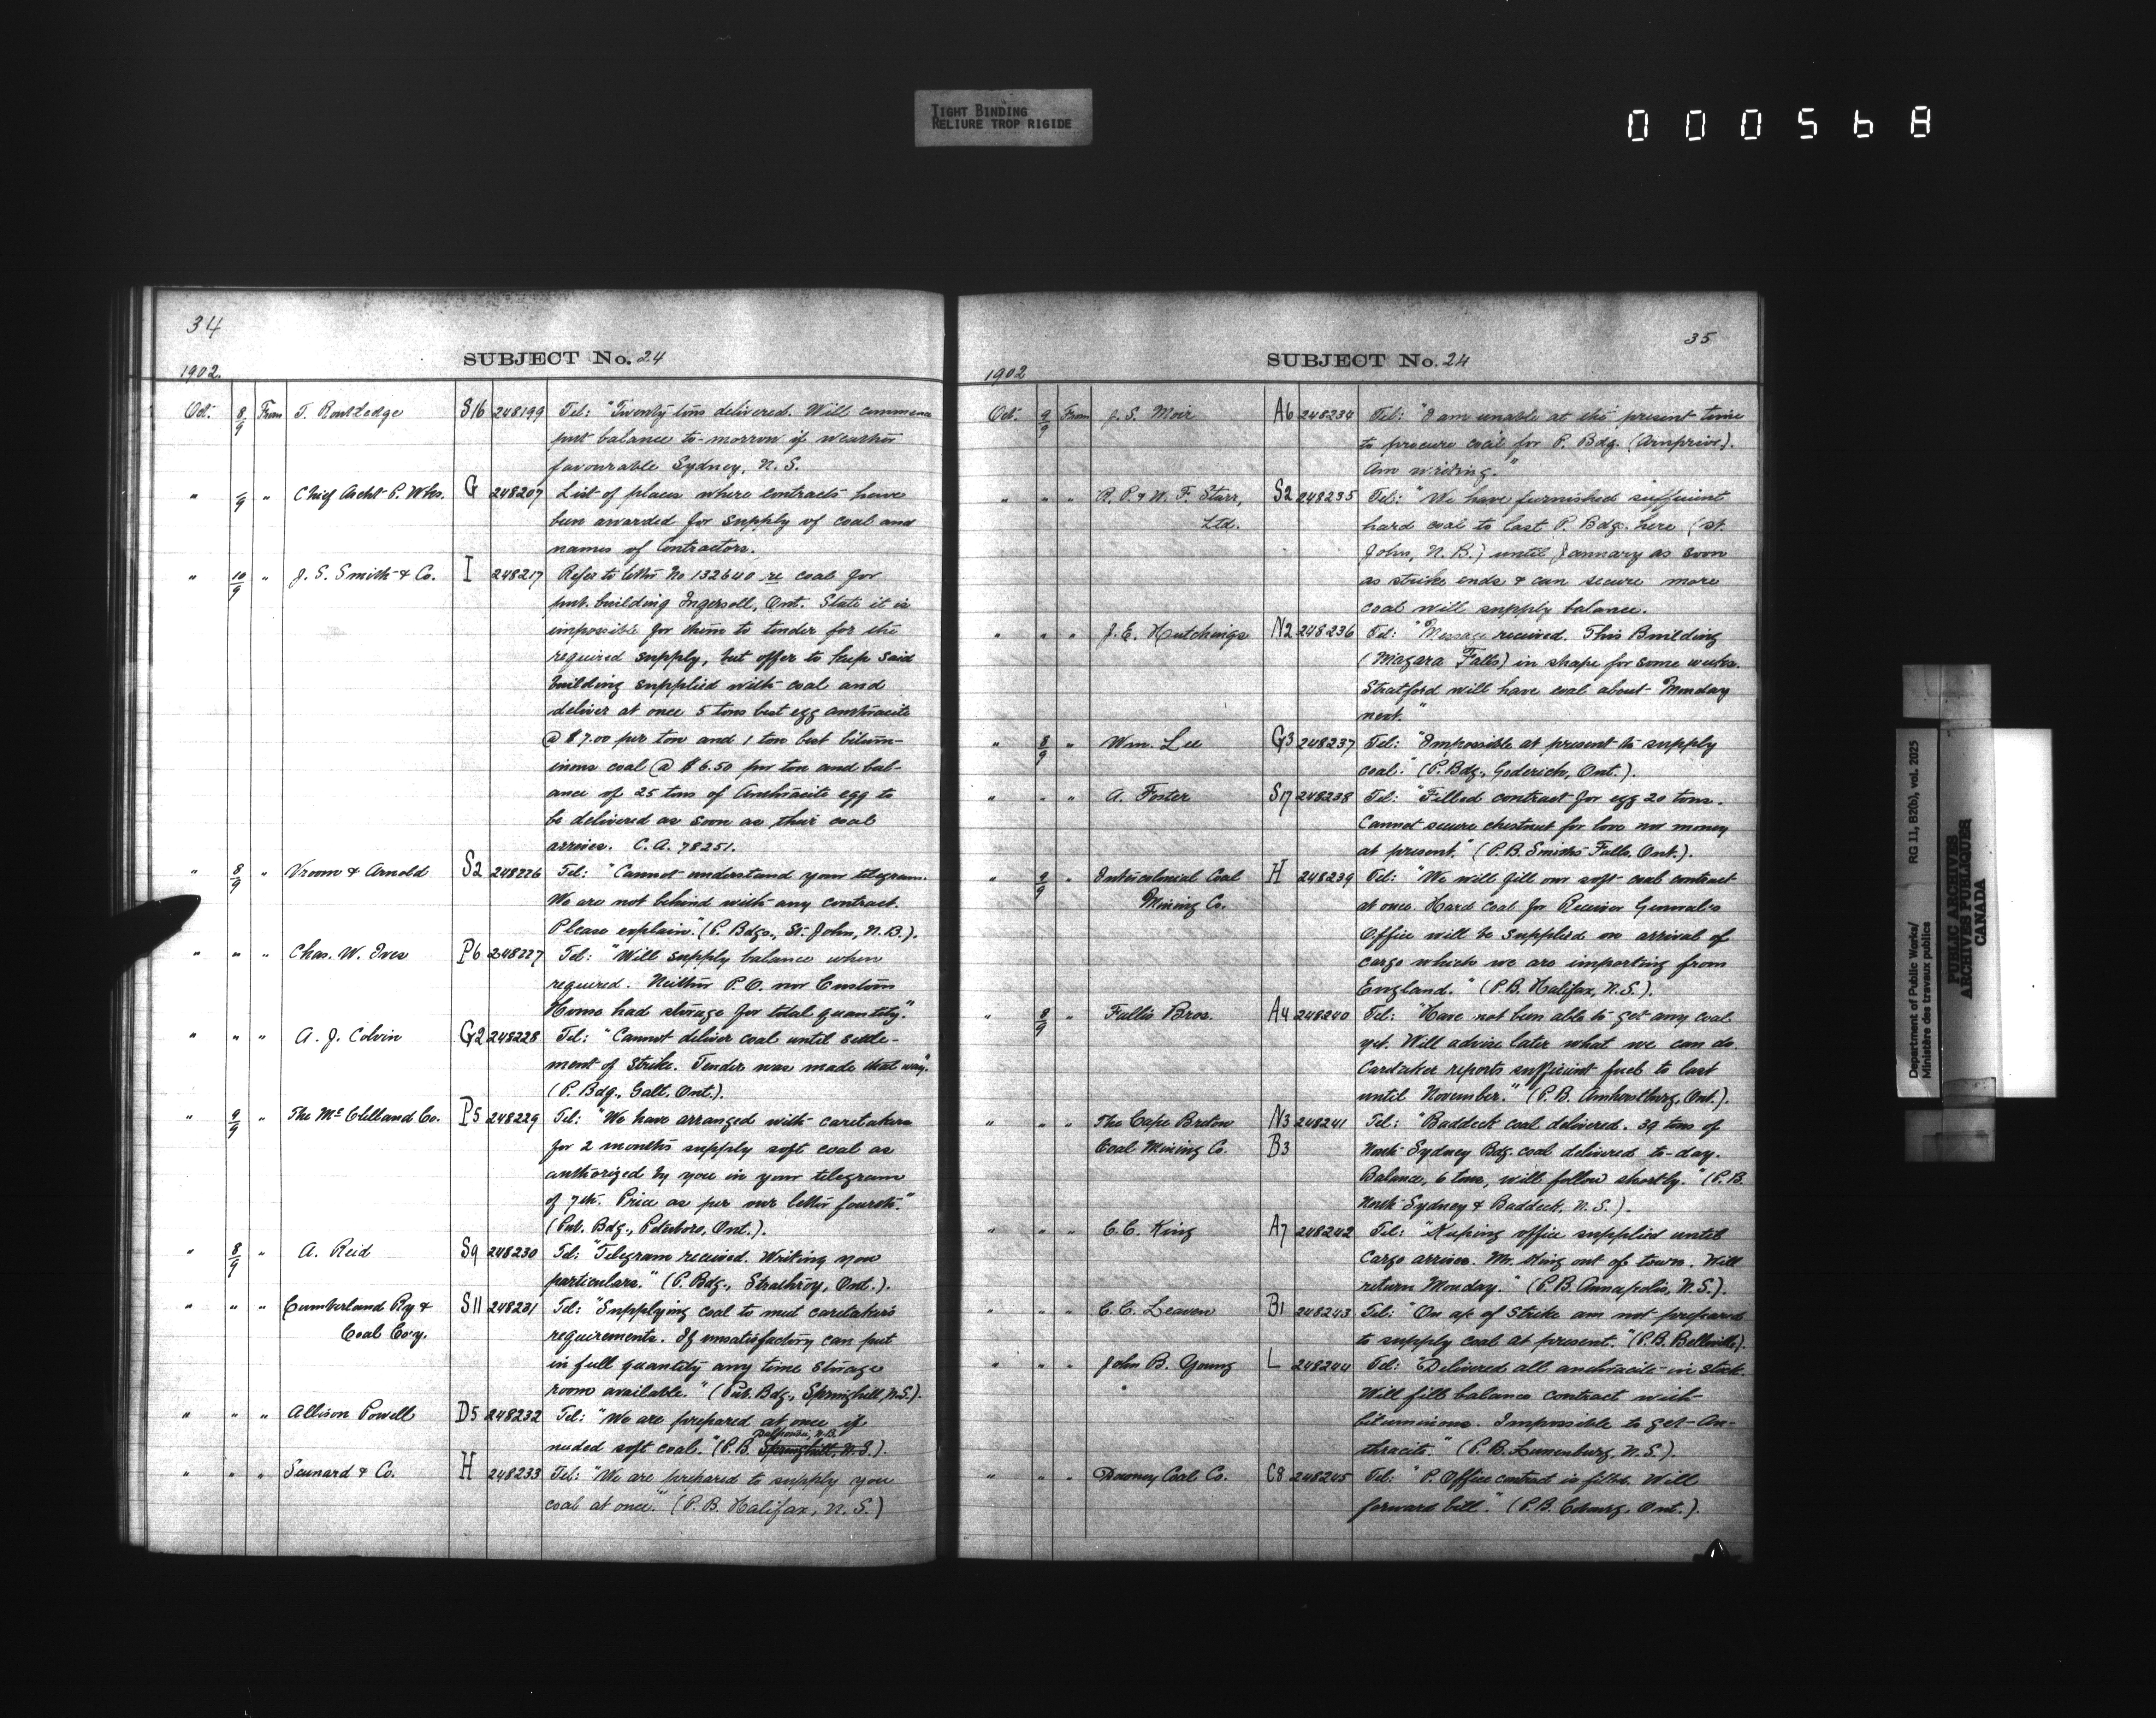 TIGHT BINDING
RELIURE TROP RIGIDE
000568
34
SUBJECT No. 24
1902.
Oct. 8/9 From T. Routledge S16 248199 Tel: "Twenty tons delivered. Will commence
put balance to-morrow if weather
favourable Sydney, N. S.
" -/9 " Chief Archt P. Wks. G 248207 List of places where contracts have
been awarded for supply of coal and
names of Contractors.
" 10/9 " J. S. Smith & Co. I 248217 Refer to letter No 132640 re coal for
pub. building Ingersoll, Ont. State it is
impossible for them to tender for the
required supply, but offer to keep said
building supplied with coal and
deliver at once 5 tons best egg anthracite
@ $7.00 per ton and 1 ton best bitum-
inous coal @ $6.50 per ton and bal-
ance of 25 tons of Anthracite egg to
be delivered as soon as their coal
arrives. C. A. 78251.
" 8/9 " Vroom & Arnold S2 248226 Tel: "Cannot understand your telegram.
We are not behind with any contract.
Please explain." (P. Bdgs., St. John, N. B.).
" " " Chas. W. Ives P6 248227 Tel: "Will supply balance when
required. Neither P. O. nor Custom
House had storage for total quantity."
" " " A. J. Colvin G2 248228 Tel: "Cannot deliver coal until settle-
ment of Strike. Tender was made that way."
(P. Bdg., Galt, Ont.).
" 9/9 " The McClelland Co. P5 248229 Tel: "We have arranged with caretakers
for 2 months supply soft coal as
authorized by you in your telegram
of 7th. Price as per our letter fourth."
(Pub. Bdg., Peterboro, Ont.).
" 8/9 " A. Reid S9 248230 Tel: "Telegram received. Writing you
particulars." (P. Bdg., Strathroy, Ont.).
" " " Cumberland Ry & S11 248231 Tel: "Supplying coal to meet caretaker's
Coal Co'y. requirements. If unsatisfactory can put
in full quantity any time storage
room available." (Pub. Bdg., Springhill, N.S.).
" " " Allison Powell D5 248232 Tel: "We are prepared at once if
Dalhousie, N.B.
needed soft coal." (P. B. Springhill, N. S.).
" " " Seunard & Co. H 248233 Tel: "We are prepared to supply you
coal at once." (P. B. Halifax, N. S.)
35
SUBJECT No. 24
1902
Oct. 9/9 From J. S. Moir A6 248234 Tel: "I am unable at the present time
to procure coal for P. Bdg. (Arnprior).
Am writing."
" " " R. P. & W. F. Starr, S2 248235 Tel: "We have furnished sufficient
Ltd. hard coal to last P. Bdg. here (St.
John, N. B.) until January as soon
as strike ends & can secure more
coal will supply balance.
" " " J. E. Hutchings N2 248236 Tel: "Message received. This Building
(Niagara Falls) in shape for some weeks.
Stratford will have coal about Monday
next."
" 8/9 " Wm. Lee G3 248237 Tel: "Impossible at present to supply
coal." (P. Bdg., Goderich, Ont.).
" " " A. Foster S17 248238 Tel: "Filled contract for egg 20 tons.
Cannot secure chestnut for love nor money
at present." (P. B. Smiths Falls, Ont.).
" 9/9 " Intercolonial Coal H 248239 Tel: "We will fill our soft coal contract
Mining Co. at once. Hard Coal for Receiver General's
Office will be supplied on arrival of
cargo which we are importing from
England." (P. B. Halifax, N. S.).
" 8/9 " Fullis Bros. A4 248240 Tel: "Have not been able to get any coal
yet. Will advise later what we can do.
Caretaker reports sufficient fuel to last
until November." (P. B. Amherstburg, Ont.).
" " " The Cape Breton N3 248241 Tel: "Baddeck coal delivered. 39 tons of
Coal Mining Co. B3 North Sydney Bdg. coal delivered to-day.
Balance, 6 tons, will follow shortly." (P. B.
North Sydney & Baddeck, N. S.).
" " " C. C. King A7 248242 Tel: "Keeping office supplied until
Cargo arrives. Mr. King out of town. Will
return Monday." (P. B. Annapolis, N. S.).
" " " C. C. Leaven B1 248243 Tel: "On a/c of Strike am not prepared
to supply coal at present." (P. B. Belleville).
" " " John B. Young L 248244 Tel: "Delivered all anthracite in stock.
Will fill balance contract with
bituminous. Impossible to get An-
thracite." (P. B. Lunenburg, N. S.).
" " " Downey Coal Co. C8 248245 Tel: "P. Office contract is filled. Will
forward bill." (P. B. Cobourg, Ont.).
Department of Public Works/ RG 11, B2(b), vol. 2025
Ministère des travaux publics
PUBLIC ARCHIVES
ARCHIVES PUBLIQUES
CANADA